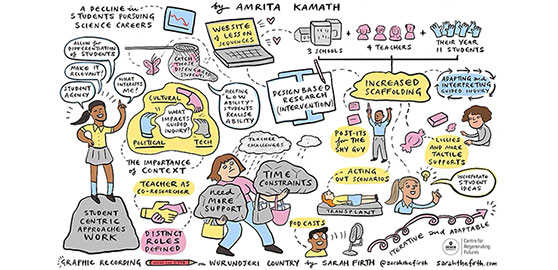 A DECLINE in
STUDENTS PURSUING
SCIENCE CAREERS
by AMRITA KAMATH
WEBSITE
of LESSON
SEQUENCES
3 SCHOOLS
+
4 TEACHERS
+
THEIR YEAR
11 STUDENTS
ALLOW for
DIFFERENTIATION
of STUDENTS
MAKE IT
RELEVANT!
STUDENT
AGENCY
WHAT
INTERESTS
ME!
CATCH
THOSE
DISENGAGED
STUDENTS!
HELPING
LOW
ABILITY
STUDENTS
REALISE
ABILITY
CULTURAL
WHAT
IMPACTS
GUIDED
INQUIRY?
POLITICAL
TECH
DESIGN BASED
RESEARCH
(INTERVENTION)
INCREASED
SCAFFOLDING
ADAPTING and
INTERPRETING
GUIDED INQUIRY
POST-ITS
for THE
SHY GUY
LOLLIES
AND MORE
TACTILE
SUPPORTS
THE IMPORTANCE
of CONTEXT
TEACHER AS
CO-RESEARCHER
DISTINCT
ROLES
DEFINED
TEACHER
CHALLENGES
need
MORE
SUPPORT
TIME
CONSTRAINTS
ACTING
OUT SCENARIOS
TRANSPLANT
INCORPORATE
STUDENT
IDEAS
STUDENT
CENTRIC
APPROACHES
WORK
PODCASTS
CREATIVE and ADAPTABLE
DEAKIN
Centre for
Regenerating
Futures
GRAPHIC RECORDING on WURUNDJERI COUNTRY by SARAH FIRTH @sarahthefirth sarahthefirth.com